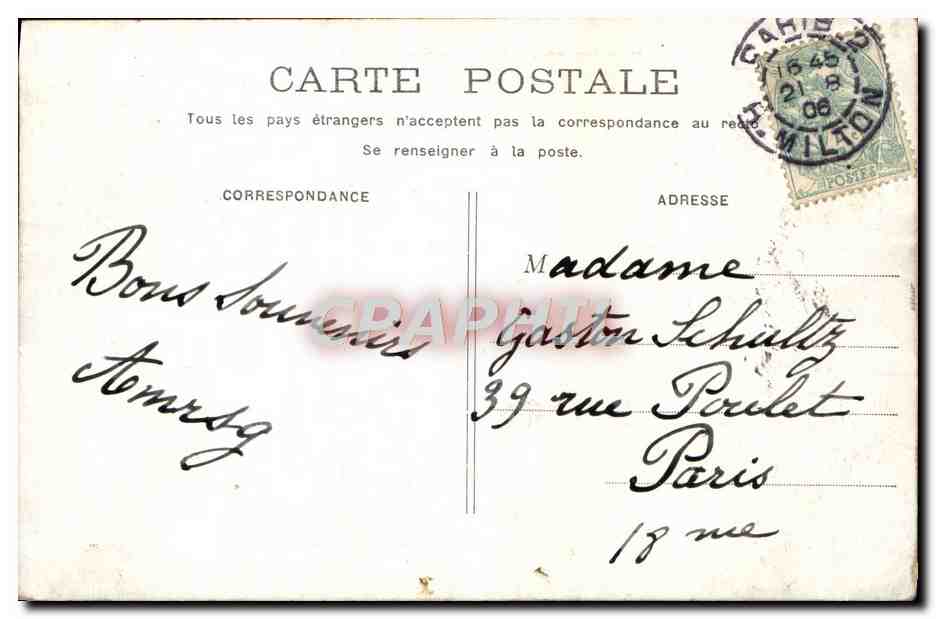 CARTE POSTALE
Tous les pays étrangers n'acceptent pas la correspondance au recto
Se renseigner à la poste.
CORRESPONDANCE
Bons Souvenirs
Amrsg
ADRESSE
Madame
Gaston Schultz
39 rue Poulet
Paris
18 me
PARIS 2
16 45
21 8
06
MILTON
POSTES
CRAPHI